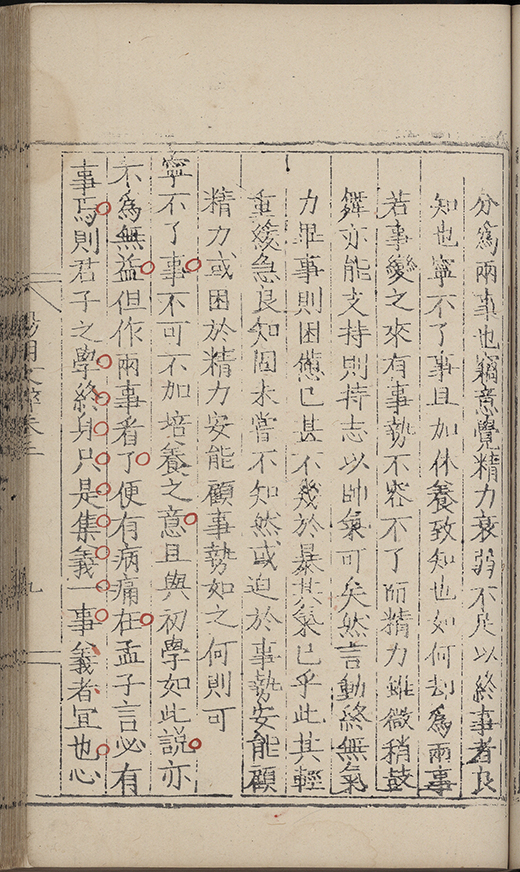 分爲兩事也竊意覺精力衰弱不足以終事者良
知也寧不了事且加休養致知也如何却爲兩事
若事變之來有事勢不容不了而精力雖微稍鼓
舞亦能支持則持志以帥氣可矣然言動終無氣
力畢事則困憊已甚不幾於暴其氣已乎此其輕
重緩急良知固未嘗不知然或迫於事勢安能顧
精力或困於精力安能顧事勢如之何則可
寧不了事不可不加培養之意且與初學如此說亦
不爲無益但作兩事看了便有病痛在孟子言必有
事焉則君子之學終身只是集義一事義者宜也心
陽明文粹卷三
九